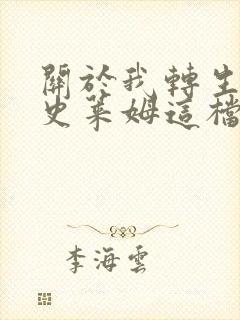 關於我轉生
史萊姆這檔
李海雲